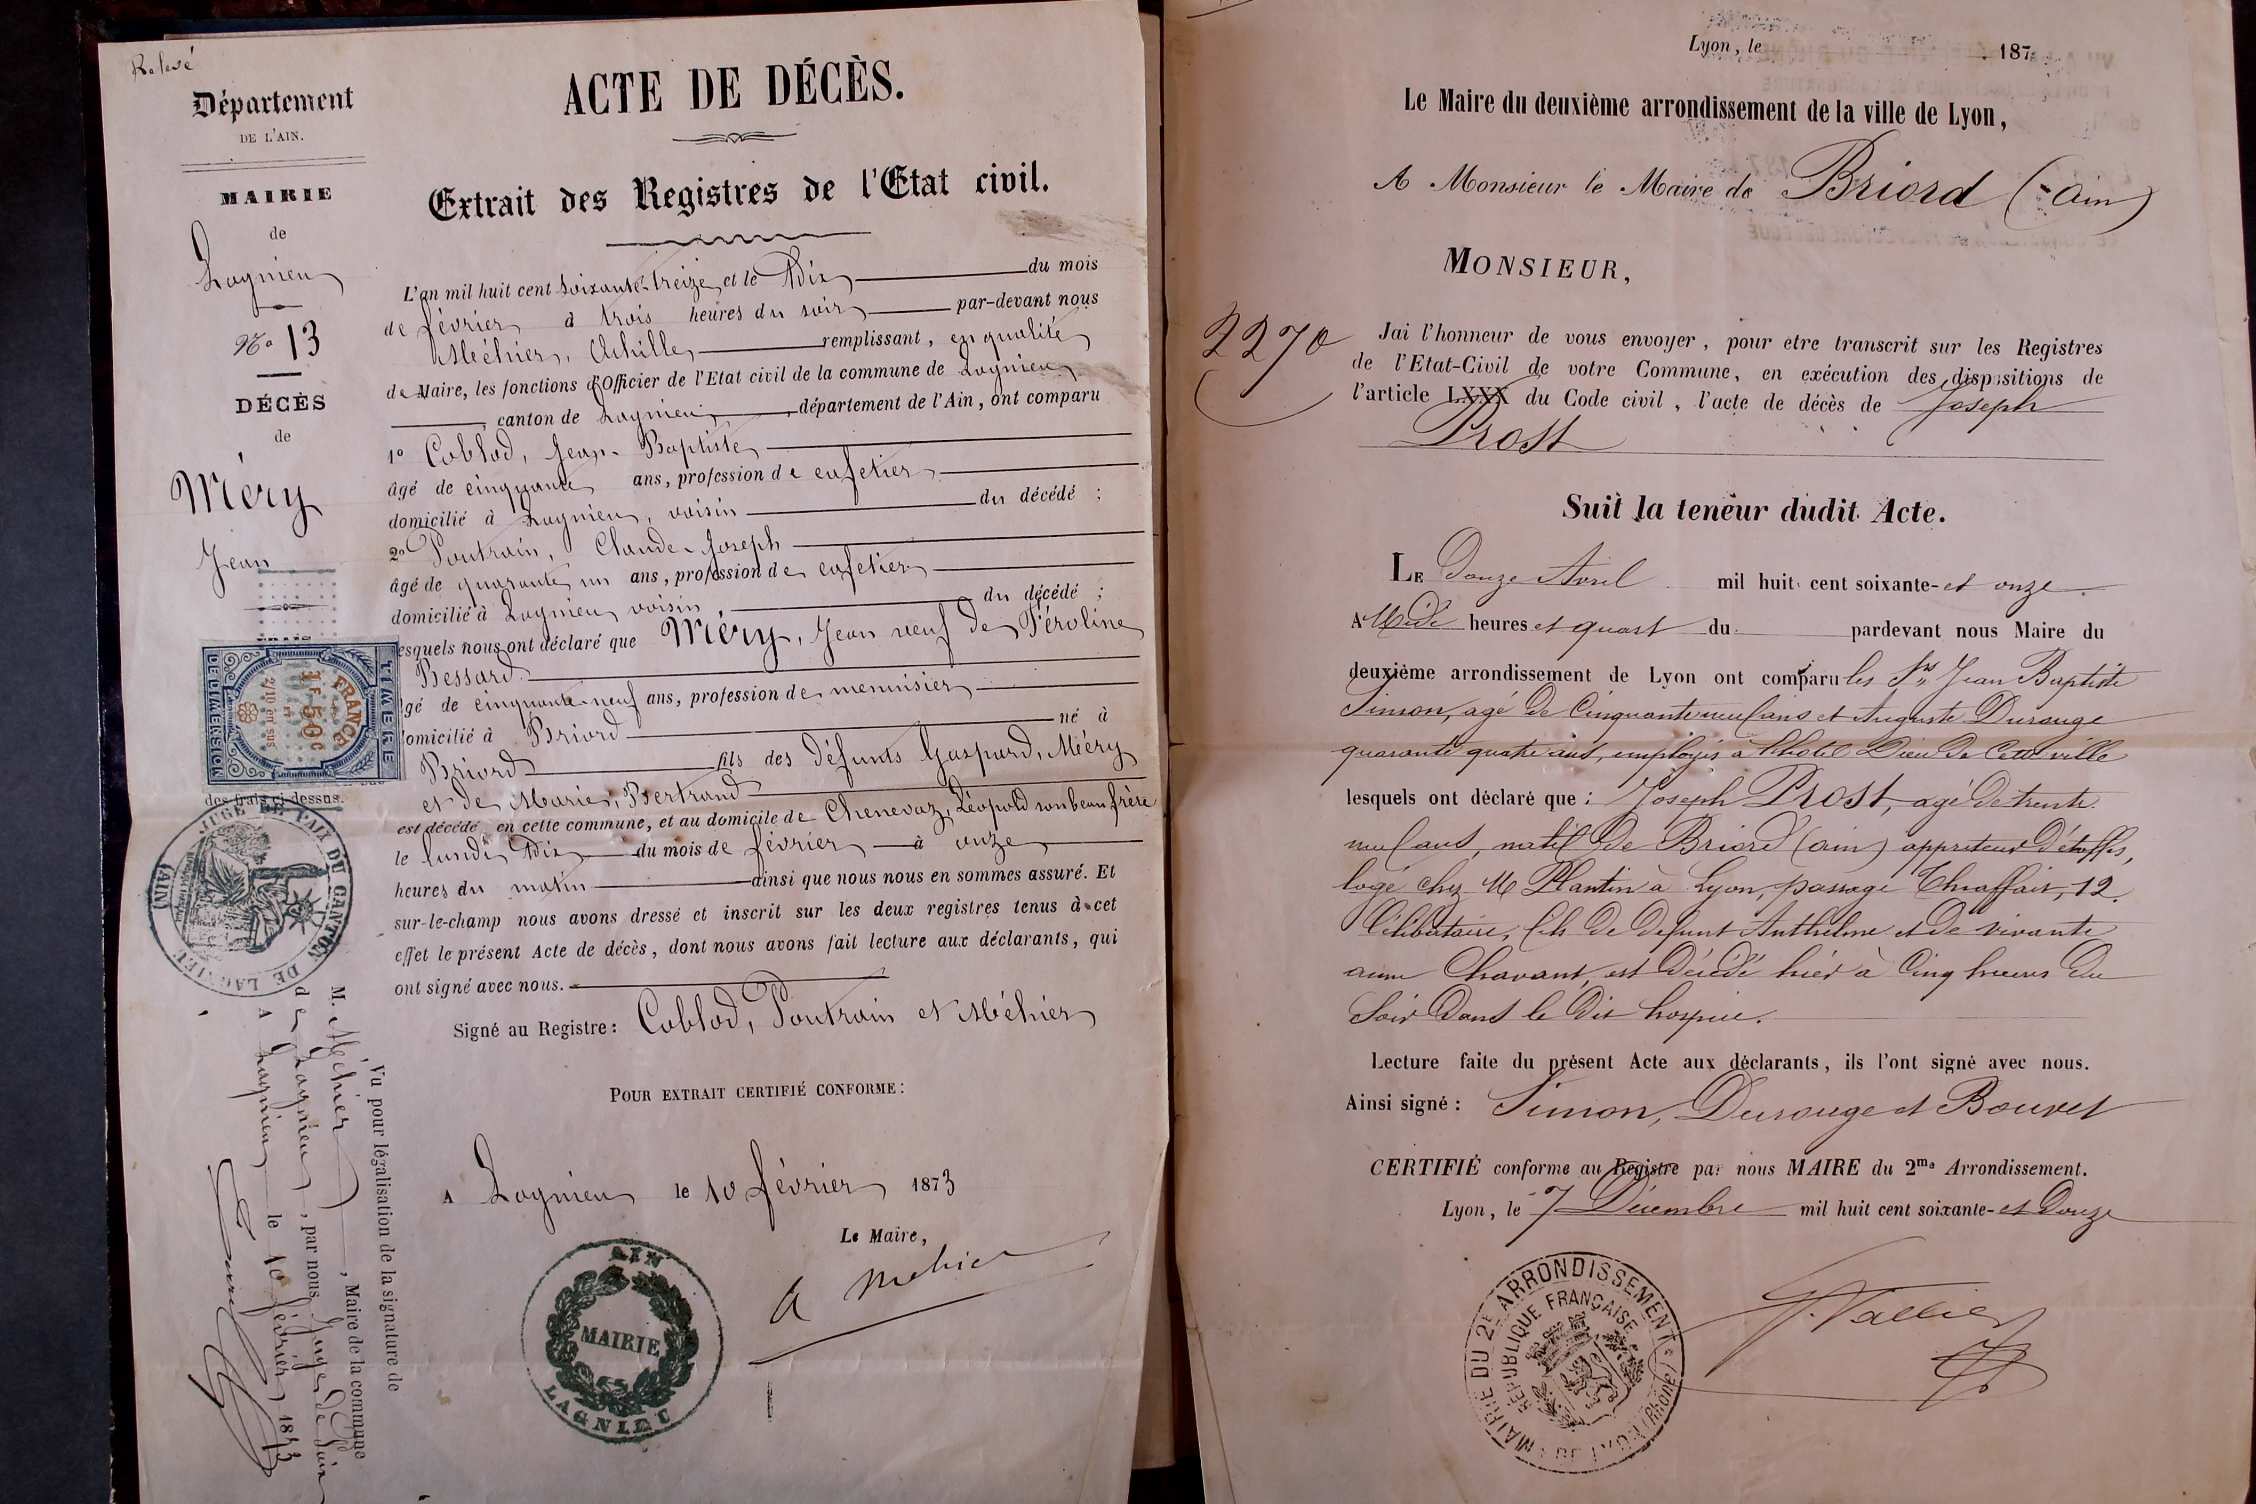 Relevé
Département
DE L'AIN.
MAIRIE
de
Lagnieu
No 13
DÉCÈS
de
Méry
Jean
TIMBRE
DE DIMENSION
FRANCE
1F 50C
2/10 en sus
des frais ci-dessus.
JUGE DE PAIX DU CANTON DE LAGNIEU (AIN)
Vu pour légalisation de la signature de
M. Méhier, Maire de la commune
de Lagnieu, par nous, Juge de Paix
A Lagnieu le 10 février 1873
ACTE DE DÉCÈS.
Extrait des Registres de l'Etat civil.
L'an mil huit cent soixante-treize et le Dix du mois
de février à trois heures du soir par-devant nous
Méhier, Achille, remplissant, en qualité
de Maire, les fonctions d'Officier de l'Etat civil de la commune de Lagnieu
, canton de Lagnieu, département de l'Ain, ont comparu
1o Coblod, Jean-Baptiste
âgé de cinquante ans, profession de cafetier
domicilié à Lagnieu, voisin du décédé ;
2o Poutrain, Claude-Joseph
âgé de quarante un ans, profession de cafetier
domicilié à Lagnieu voisin, du décédé ;
esquels nous ont déclaré que Méry, Jean veuf de Péroline
Bessard
gé de cinquante-neuf ans, profession de menuisier
omicilié à Briord né à
Briord fils des défunts Gaspard, Méry
et de Marie, Bertrand
est décédé en cette commune, et au domicile de Chenevaz, Léopold son beau frère
le lundi Dix du mois de février à onze
heures du matin ainsi que nous nous en sommes assuré. Et
sur-le-champ nous avons dressé et inscrit sur les deux registres tenus à cet
effet le présent Acte de décès, dont nous avons fait lecture aux déclarants, qui
ont signé avec nous.
Signé au Registre : Coblod, Poutrain et Méhier
POUR EXTRAIT CERTIFIÉ CONFORME :
A Lagnieu le 10 février 1873
Le Maire,
A Mehier
AIN
MAIRIE
LAGNIEU
Lyon, le 187
Le Maire du deuxième arrondissement de la ville de Lyon,
A Monsieur le Maire de Briord (Ain)
MONSIEUR,
2270
Jai l'honneur de vous envoyer, pour etre transcrit sur les Registres
de l'Etat-Civil de votre Commune, en exécution des dispositions de
l'article LXXX du Code civil, l'acte de décès de Joseph
Prost
Suit la teneur dudit Acte.
LE Douze Avril mil huit cent soixante-et onze
A Midi heures et quart du pardevant nous Maire du
deuxième arrondissement de Lyon ont comparu les Srs Jean Baptiste
Simon, agé de Cinquante neuf ans et Auguste Durouge
quarante quatre ans, employés à l'hotel Dieu de Cette ville
lesquels ont déclaré que : Joseph Prost, agé de trente
neuf ans, natif de Briord (ain) appreteur d'étoffes,
logé chez M Plantin à Lyon, passage Thiaffait, 12.
Célibataire, fils de defunt Anthelme et de vivante
anne Chavant, est Décédé hier à Cinq heures du
Soir Dans le dit hospice.
Lecture faite du présent Acte aux déclarants, ils l'ont signé avec nous.
Ainsi signé : Simon, Durouge et Bouvet
CERTIFIÉ conforme au Registre par nous MAIRE du 2me Arrondissement.
Lyon, le 7 Décembre mil huit cent soixante-et Douze
MAIRIE DU 2E ARRONDISSEMENT DE LYON (RHONE)
RÉPUBLIQUE FRANÇAISE
Vallier